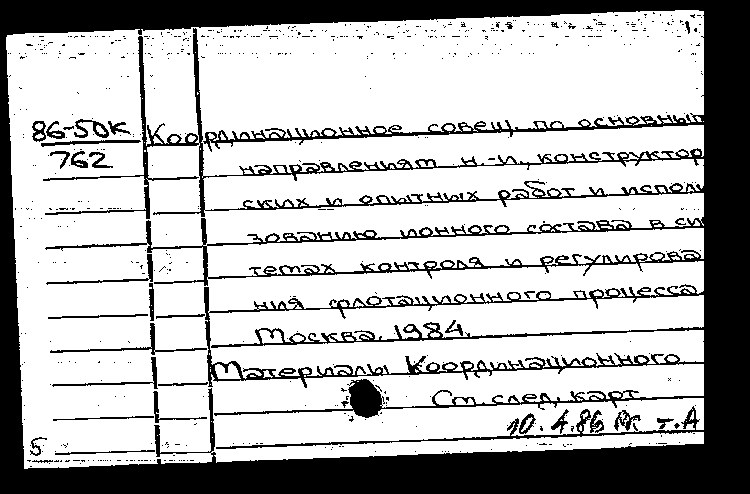 86-50К Координационное совещ. по основным
762 направлениям н.-и., конструктор
ских и опытных работ и исполь
зованию ионного состава в сис
темах контроля и регулирова
ния флотационного процесса.
Москва. 1984.
Материалы Координационного
См. след. карт.
10.4.86 т. А
5